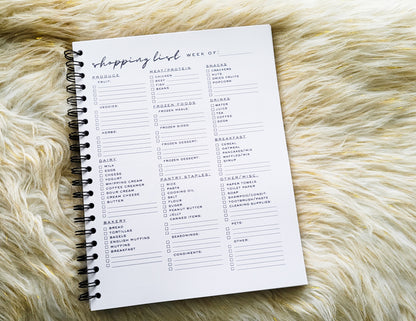 shopping list WEEK OF:
PRODUCE
FRUIT:
VEGGIES:
HERBS:
DAIRY
MILK
EGGS
CHEESE
YOGURT
WHIPPING CREAM
COFFEE CREAMER
SOUR CREAM
CREAM CHEESE
BUTTER
BAKERY
BREAD
TORTILLAS
BAGELS
ENGLISH MUFFINS
MUFFINS
BREAKFAST
MEAT/PROTEIN
CHICKEN
BEEF
FISH
BEANS
FROZEN FOODS
FROZEN MEALS:
FROZEN SIDES:
FROZEN DESSERT:
FROZEN DESSERT:
PANTRY STAPLES
RICE
PASTA
COOKING OIL
SALT
FLOUR
SUGAR
PEANUT BUTTER
JELLY
CANNED ITEMS:
SEASONINGS:
CONDIMENTS:
SNACKS
CRACKERS
NUTS
DRIED FRUITS
POPCORN
DRINKS
WATER
JUICE
TEA
COFFEE
SODA
BREAKFAST
CEREAL
OATMEAL
PANCAKES/MIX
WAFFLES/MIX
SYRUP
OTHER/MISC.
PAPER TOWELS
TOILET PAPER
SOAP
SHAMPOO/CONDIT.
TOOTHBRUSH/PASTE
CLEANING SUPPLIES
PETS:
OTHER: